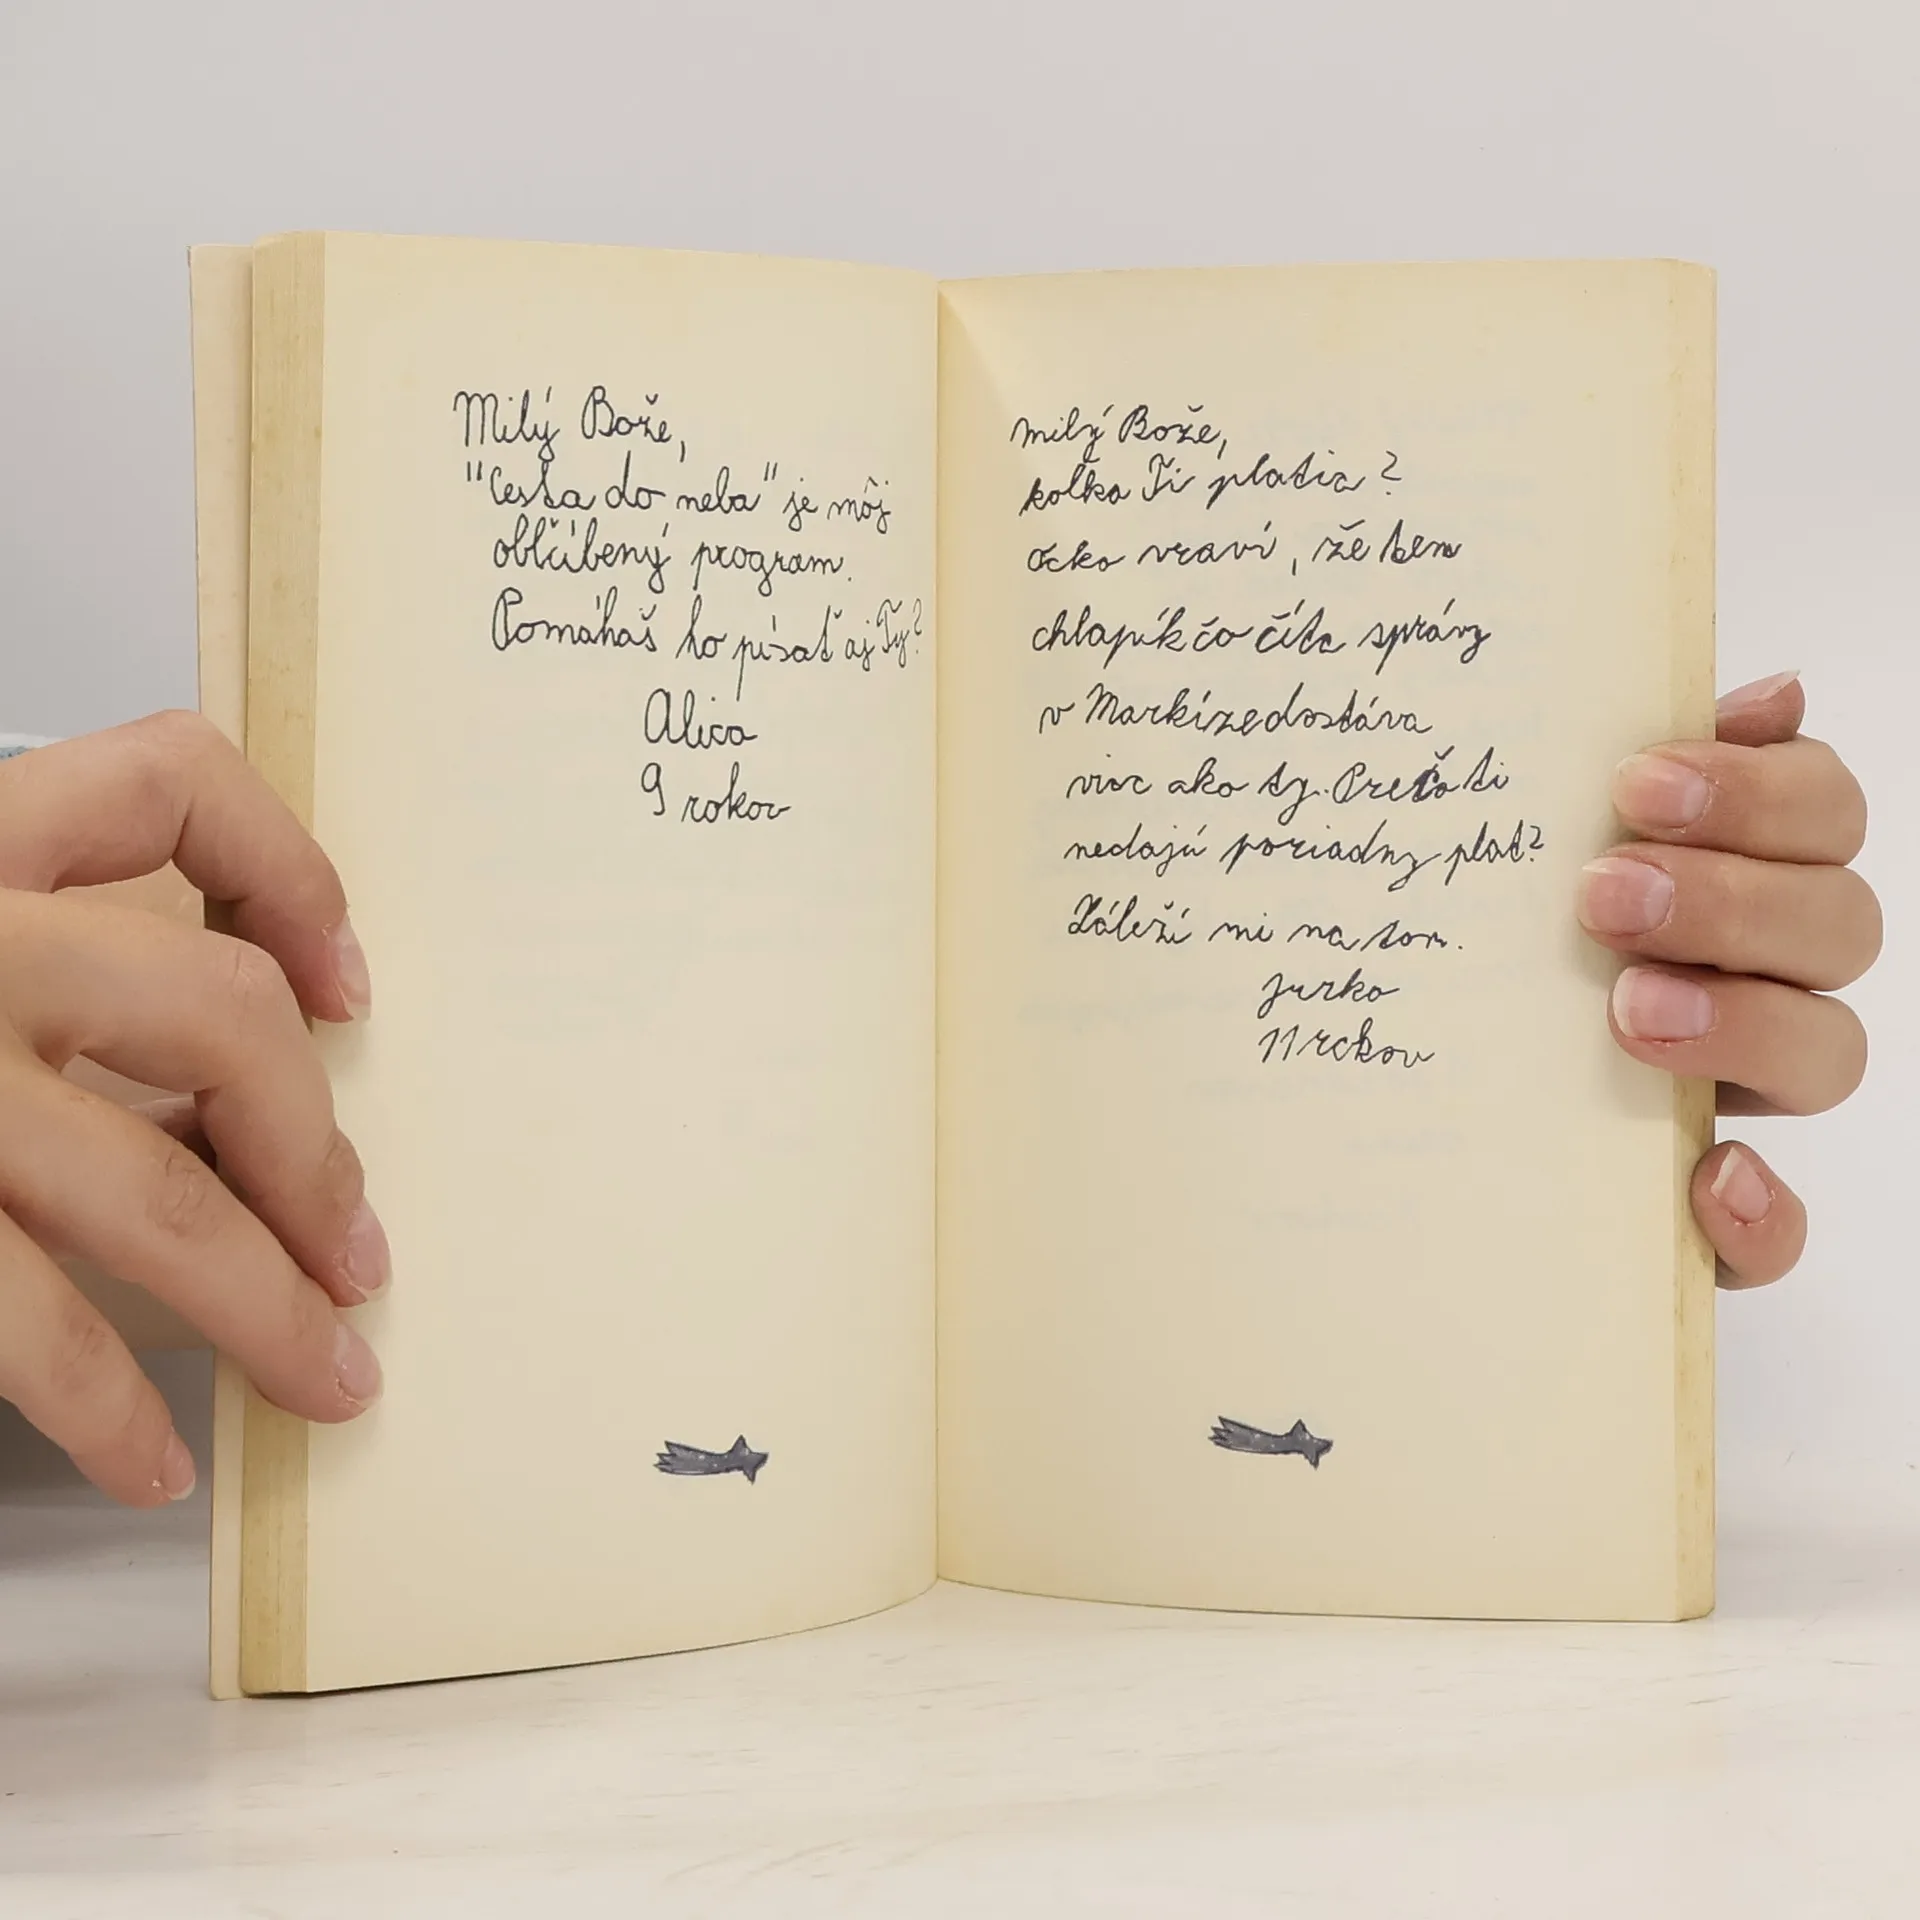 Milý Bože,
"Cesta do neba" je môj
obľúbený program.
Pomáhaš ho písať aj Ty?
Alica
9 rokov
milý Bože,
kolko Ti platia?
Ocko vraví, že ten
chlapík čo číta správy
v Markíze dostáva
viac ako ty. Prečo ti
nedajú poriadny plat?
Záleží mi na tom.
Jurko
11 rokov